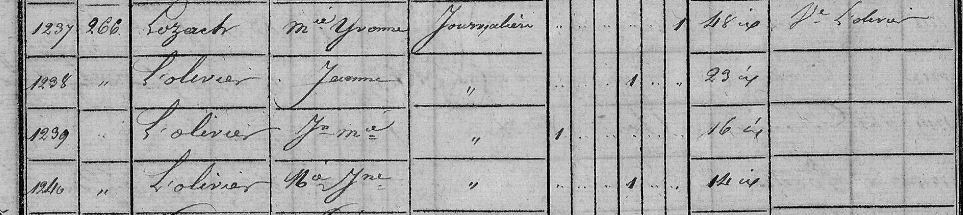 1237 266 Lozach mie Yvonne Journalière 1 48 ix Ve L'olivier
1238 " L'olivier Jeanne " 1 23 ix
1239 " L'olivier Jn mie " 1 16 ix
1240 " L'olivier Mie Jne " 1 14 ix